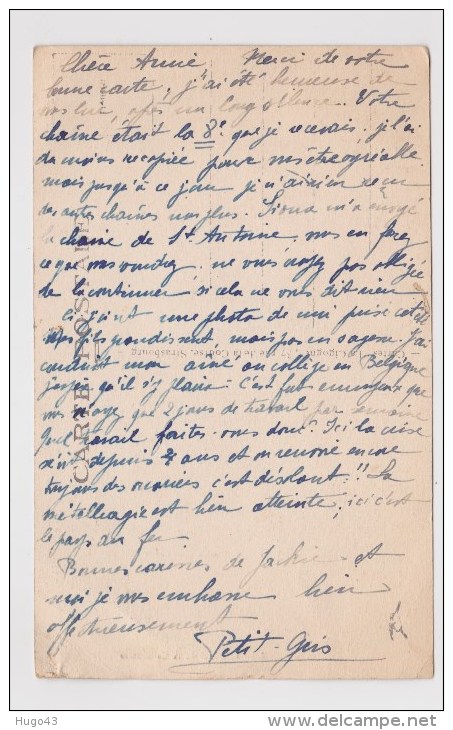 Chère Annie Merci de votre
bonne carte, j'ai été heureuse de
vous lire, après un long silence. Votre
chaîne était la 8e que je recevais, je l'ai
du moins recopiée pour vous être agréable
mais jusqu'à ce jour je n'ai rien reçu
des autres chaînes non plus. Sima m'a envoyé
la chaîne de St Antoine, vous en ferez
ce que vous voudrez, ne vous croyez pas obligée
de la continuer si cela ne vous dit rien
Ci joint une photo de mai prise cet été
Mes fils grandissent, mais pas en sagesse. J'ai
conduit mon aîné au collège en Belgique
j'espère qu'il s'y plaira. C'est ennuyeux que
vous n'ayez que 2 jours de travail par semaine
Quel travail faites-vous donc? Ici la crise
sévit depuis 2 ans et on renvoie encore
toujours des ouvriers c'est désolant!! La
métallurgie est bien atteinte, ici c'est
le pays du fer
Bonnes caresses de Jackie et
moi je vous embrasse bien
affectueusement
Petit-Gris
CARTE POSTALE
Strasbourg
Hugo43
delcampe.net